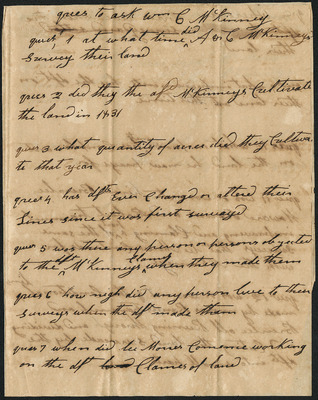 ques to ask wm C McKinney
quest 1 at what time did A & C McKinneys
Survey their land
ques 2 did they the sd McKinneys Cultivate
the land in 1831
ques 3 what quantity of acres did they Cultiva
te that year
ques 4 has dfts Ever Changed or altered their
Lines since it was first surveyed
ques 5 was there any person or persons objected
to the dfts McKinneys Claims when they made them
ques 6 how nigh did any person live to their
surveys when the dfts made them
ques 7 when did lee Moris Comence working
on the dfts land Claimes of land